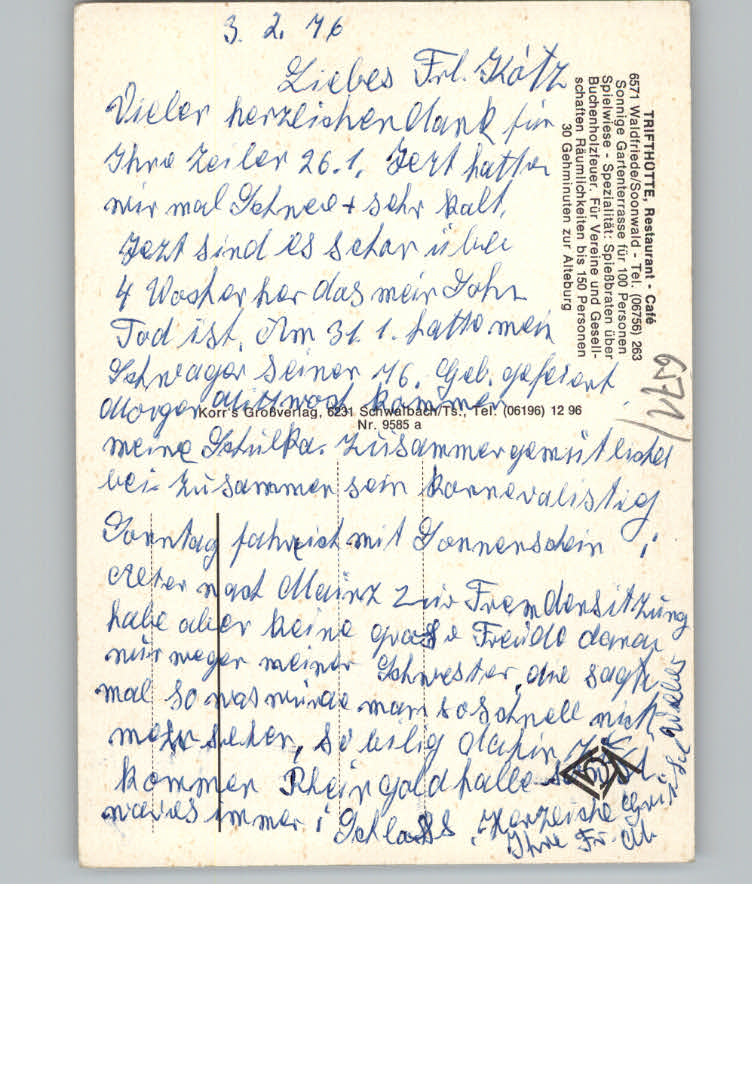 3. 2. 76
Liebes Frl. Kötz
Vieler herzlichen dank für
Ihre Zeiler 26.1. Jezt hatte
wir mal Schnee + sehr kalt,
Jezt sind es schon über
4 Wocher her das mein Sohn
Tod ist, Am 31. 1. hatte mein
Schwager seiner 76. Geb. gefeiert
Morgen Mitwoch kommen
meine Schulka. zusammer gemütlich
bei zusammen sein karnevalistig
Sonntag fahre ich mit Sonnenschein
nach Mainz zur Fremdensitzung
habe aber keine große Freude daran
nur weger meiner Schwester, die sagte
mal so was würde man so schnell nicht
mehr sehen, so billig dahin zu
kommen Rheingoldhalle sonst
war es immer i Schloss. Herzliche Grüße
Ihre Fr.
TRIFTHÜTTE, Restaurant - Café
6571 Waldfriede/Soonwald - Tel. (06756) 263
Sonnige Gartenterrasse für 100 Personen
Spielwiese - Spezialität: Spießbraten über
Buchenholzfeuer. Für Vereine und Gesell-
schaften Räumlichkeiten bis 150 Personen
30 Gehminuten zur Alteburg
6571/
Korr's Großverlag, 6231 Schwalbach/Ts., Tel. (06196) 12 96
Nr. 9585 a